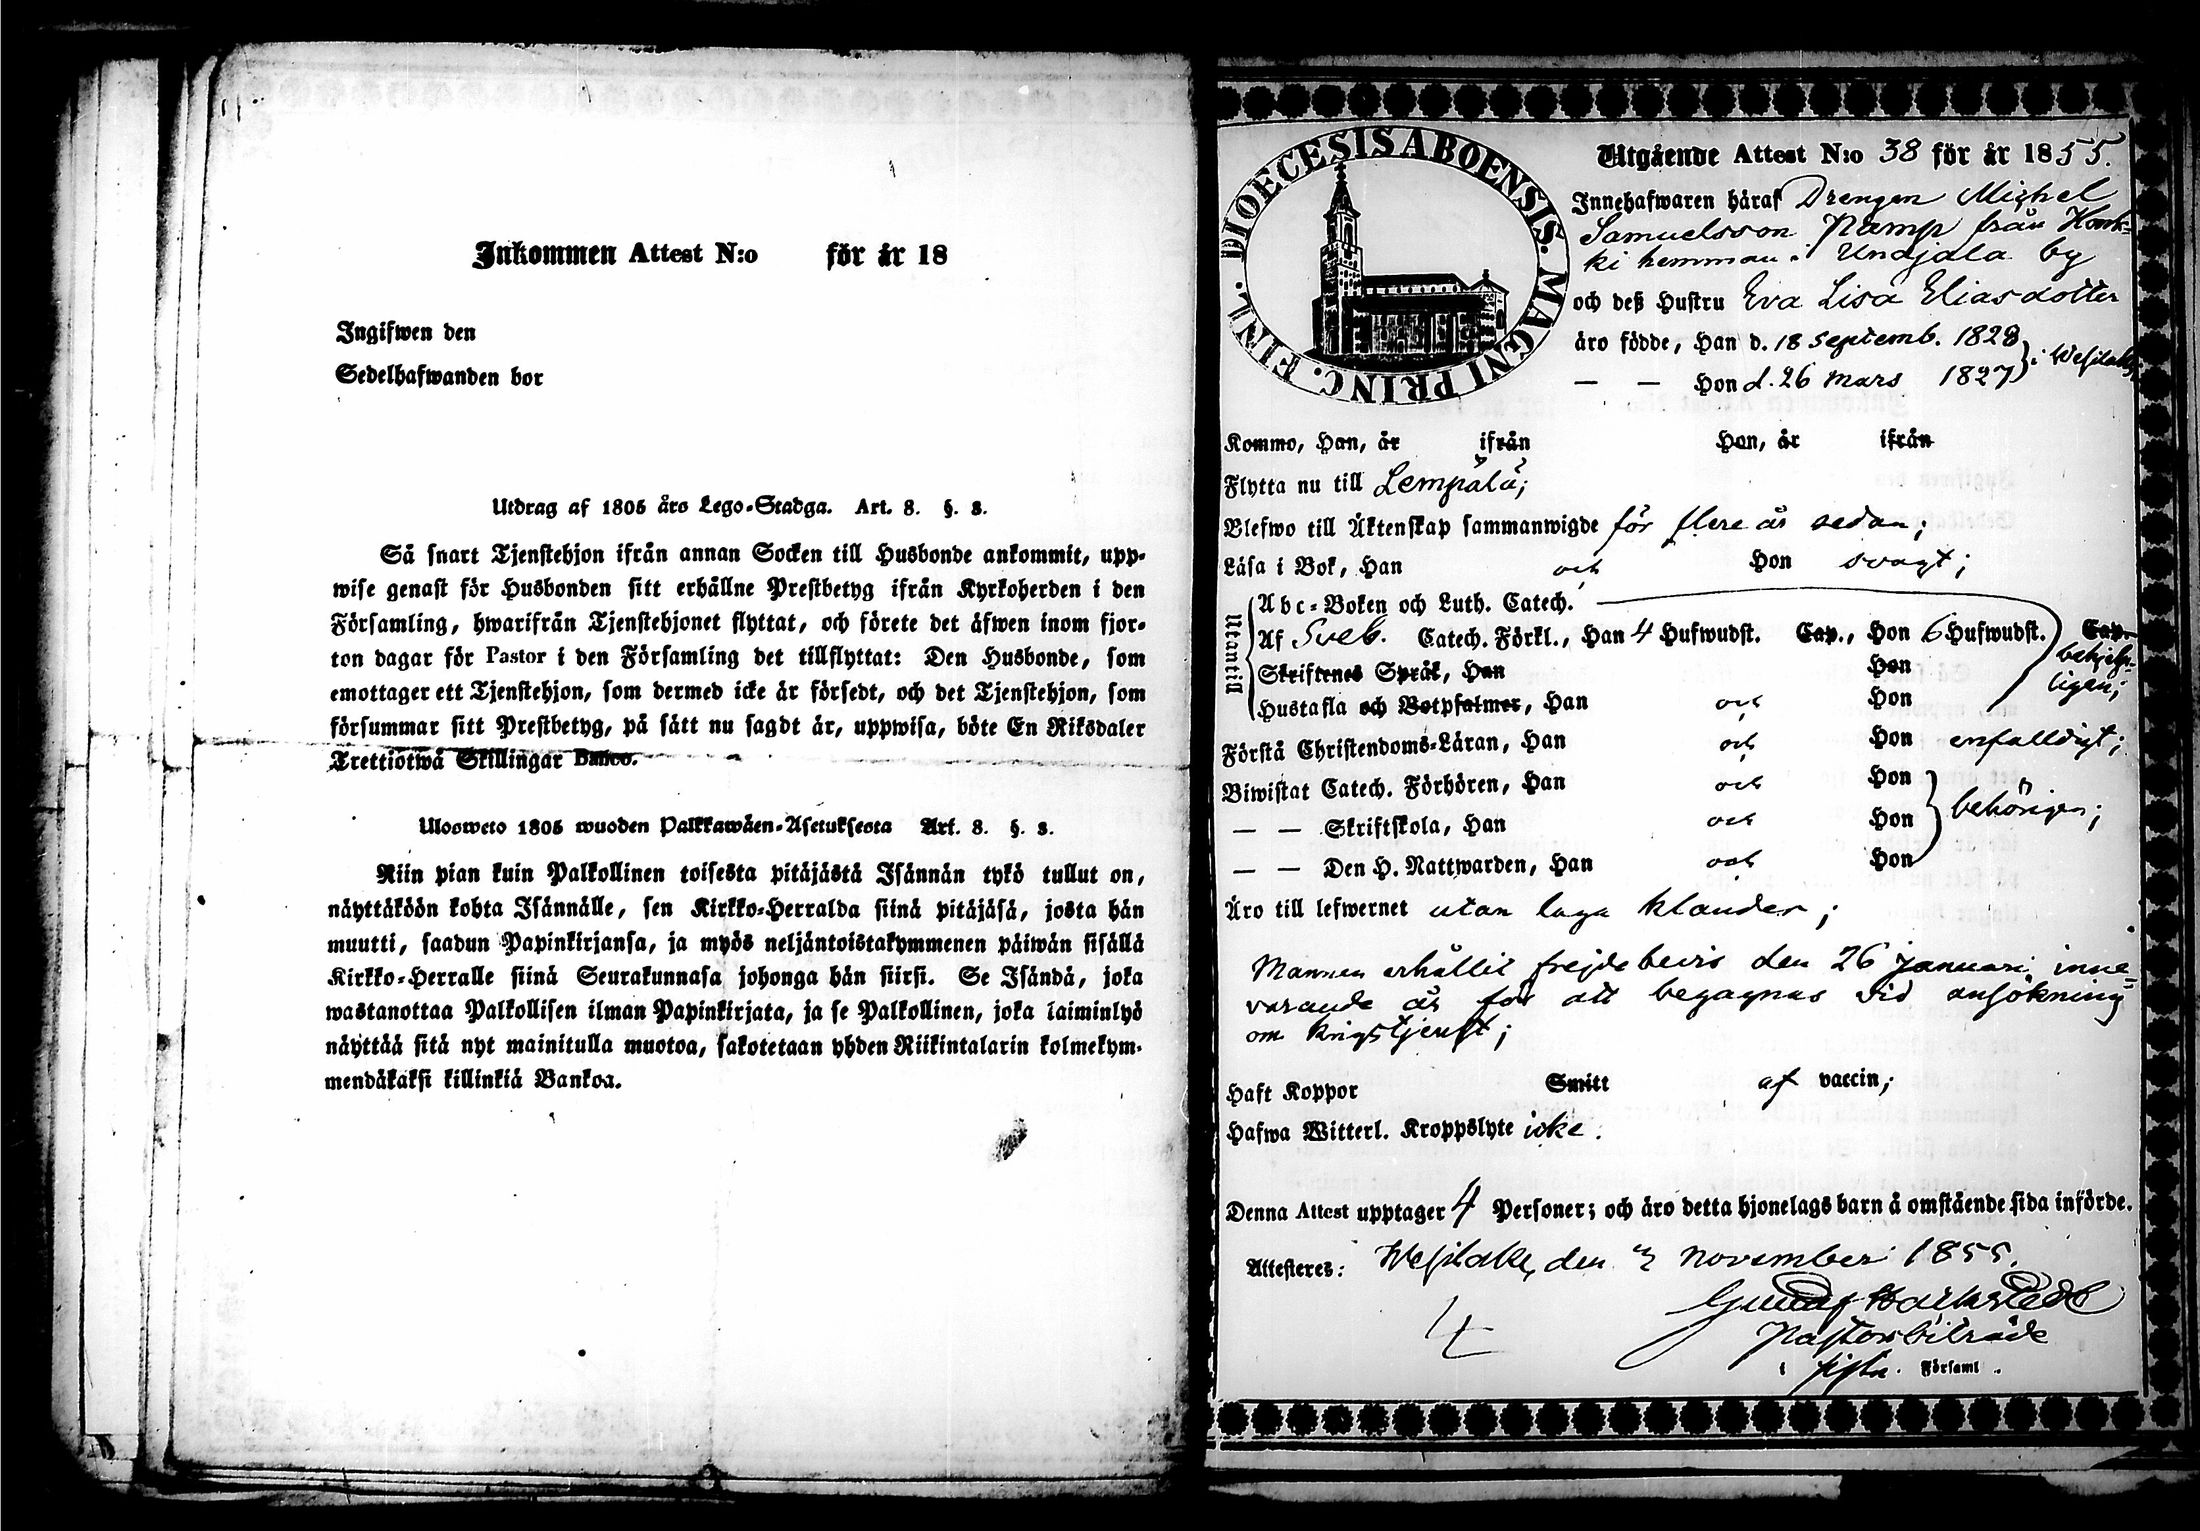 Inkommen Attest N:o för år 18
Ingifwen den
Sedelhafwanden bor
Utdrag af 1805 års Lego-Stadga. Art. 8. §. 3.
Så snart Tjenstehjon ifrån annan Socken till Husbonde ankommit, upp-
wise genast för Husbonden sitt erhållne Prestbetyg ifrån Kyrkoherden i den
Församling, hwarifrån Tjenstehjonet flyttat, och förete det äfwen inom fjor-
ton dagar för Pastor i den Församling det tillflyttat: Den Husbonde, som
emottager ett Tjenstehjon, som dermed icke är försedt, och det Tjenstehjon, som
försummar sitt Prestbetyg, på sätt nu sagdt är, uppwisa, böte En Riksdaler
Trettiotwå Skillingar Banco.
Ulosweto 1805 wuoden Palkkawäen-Asetuksesta Art. 8. §. 3.
Niin pian kuin Palkollinen toisesta pitäjästä Isännän tykö tullut on,
näyttäköön kohta Isännälle, sen Kirkko-Herralda siinä pitäjäsä, josta hän
muutti, saadun Papinkirjansa, ja myös neljäntoistakymmenen päiwän sisällä
Kirkko-Herralle siinä Seurakunnasa johonga hän siirsi. Se Isändä, joka
wastanottaa Palkollisen ilman Papinkirjata, ja se Palkollinen, joka laiminlyö
näyttää sitä nyt mainitulla muotoa, sakotetaan yhden Riikintalarin kolmekym-
mendäkaksi killinkiä Bankoa.
DIOECESIS ABOENSIS. MAGNI PRINC. FINL.
Utgående Attest N:o 38 för år 1855.
Innehafwaren häraf Drengen Michel
Samuelsson Ramp från Konk-
ki hemman i Undjala by
och deß Hustru Eva Lisa Eliasdotter
äro födde, Han d. 18 septemb. 1828
— — Hon d. 26 Mars 1827 } i Wesilaks,
Komme, Han, år ifrån Hon, år ifrån
Flytta nu till Lempälä;
Blefwo till Äktenskap sammanwigde för flere år sedan;
Läsa i Bok, Han och Hon svagt;
Utantill
Abc-Boken och Luth. Catech.
Af Sveb. Catech. Förkl., Han 4 Hufwudst. Cap., Hon 6 Hufwudst. Cap.
behjelp-
ligen;
Skriftenes Språk, Han Hon
Hustafla och Botpsalmer, Han och Hon
Förstå Christendoms-Läran, Han och Hon enfalldigt;
Biwistat Catech. Förhören, Han och Hon
— — Skriftskola, Han och Hon behörigen;
— — Den H. Nattwarden, Han och Hon
Äro till lefwernet utan laga klander;
Mannen erhållit frejdebevis den 26 januari inne-
varande år för att begagnas vid ansökning
om krigstjenst;
Haft Koppor Smitt af vaccin;
Hafwa Witterl. Kroppslyte icke.
Denna Attest upptager 4 Personer; och äro detta hjonelags barn å omstående sida införde.
Attesteres: Wesilaks, den 2 November 1855.
4
Pastorsbiträde
i Församl.